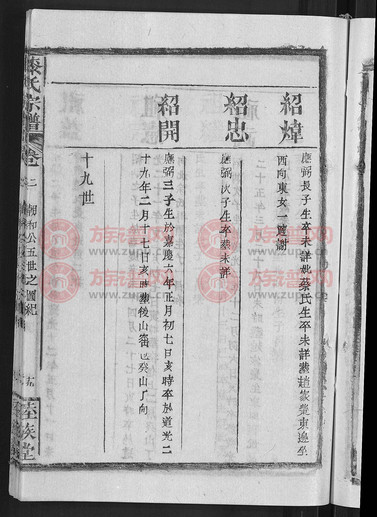 紹煒
應弼長子生卒未詳妣蔡氏生卒未詳葬趙家壟東邊坐
西向東女一適謝
紹忠
應弼次子生卒葬未詳
紹開
應弼三子生於嘉慶六年正月初七日亥時卒於道光二
十九年二月十七日亥時葬後山窩巳癸山丁向
十九世
氏宗譜
卷二
朝和公五世之圖紀
族堂